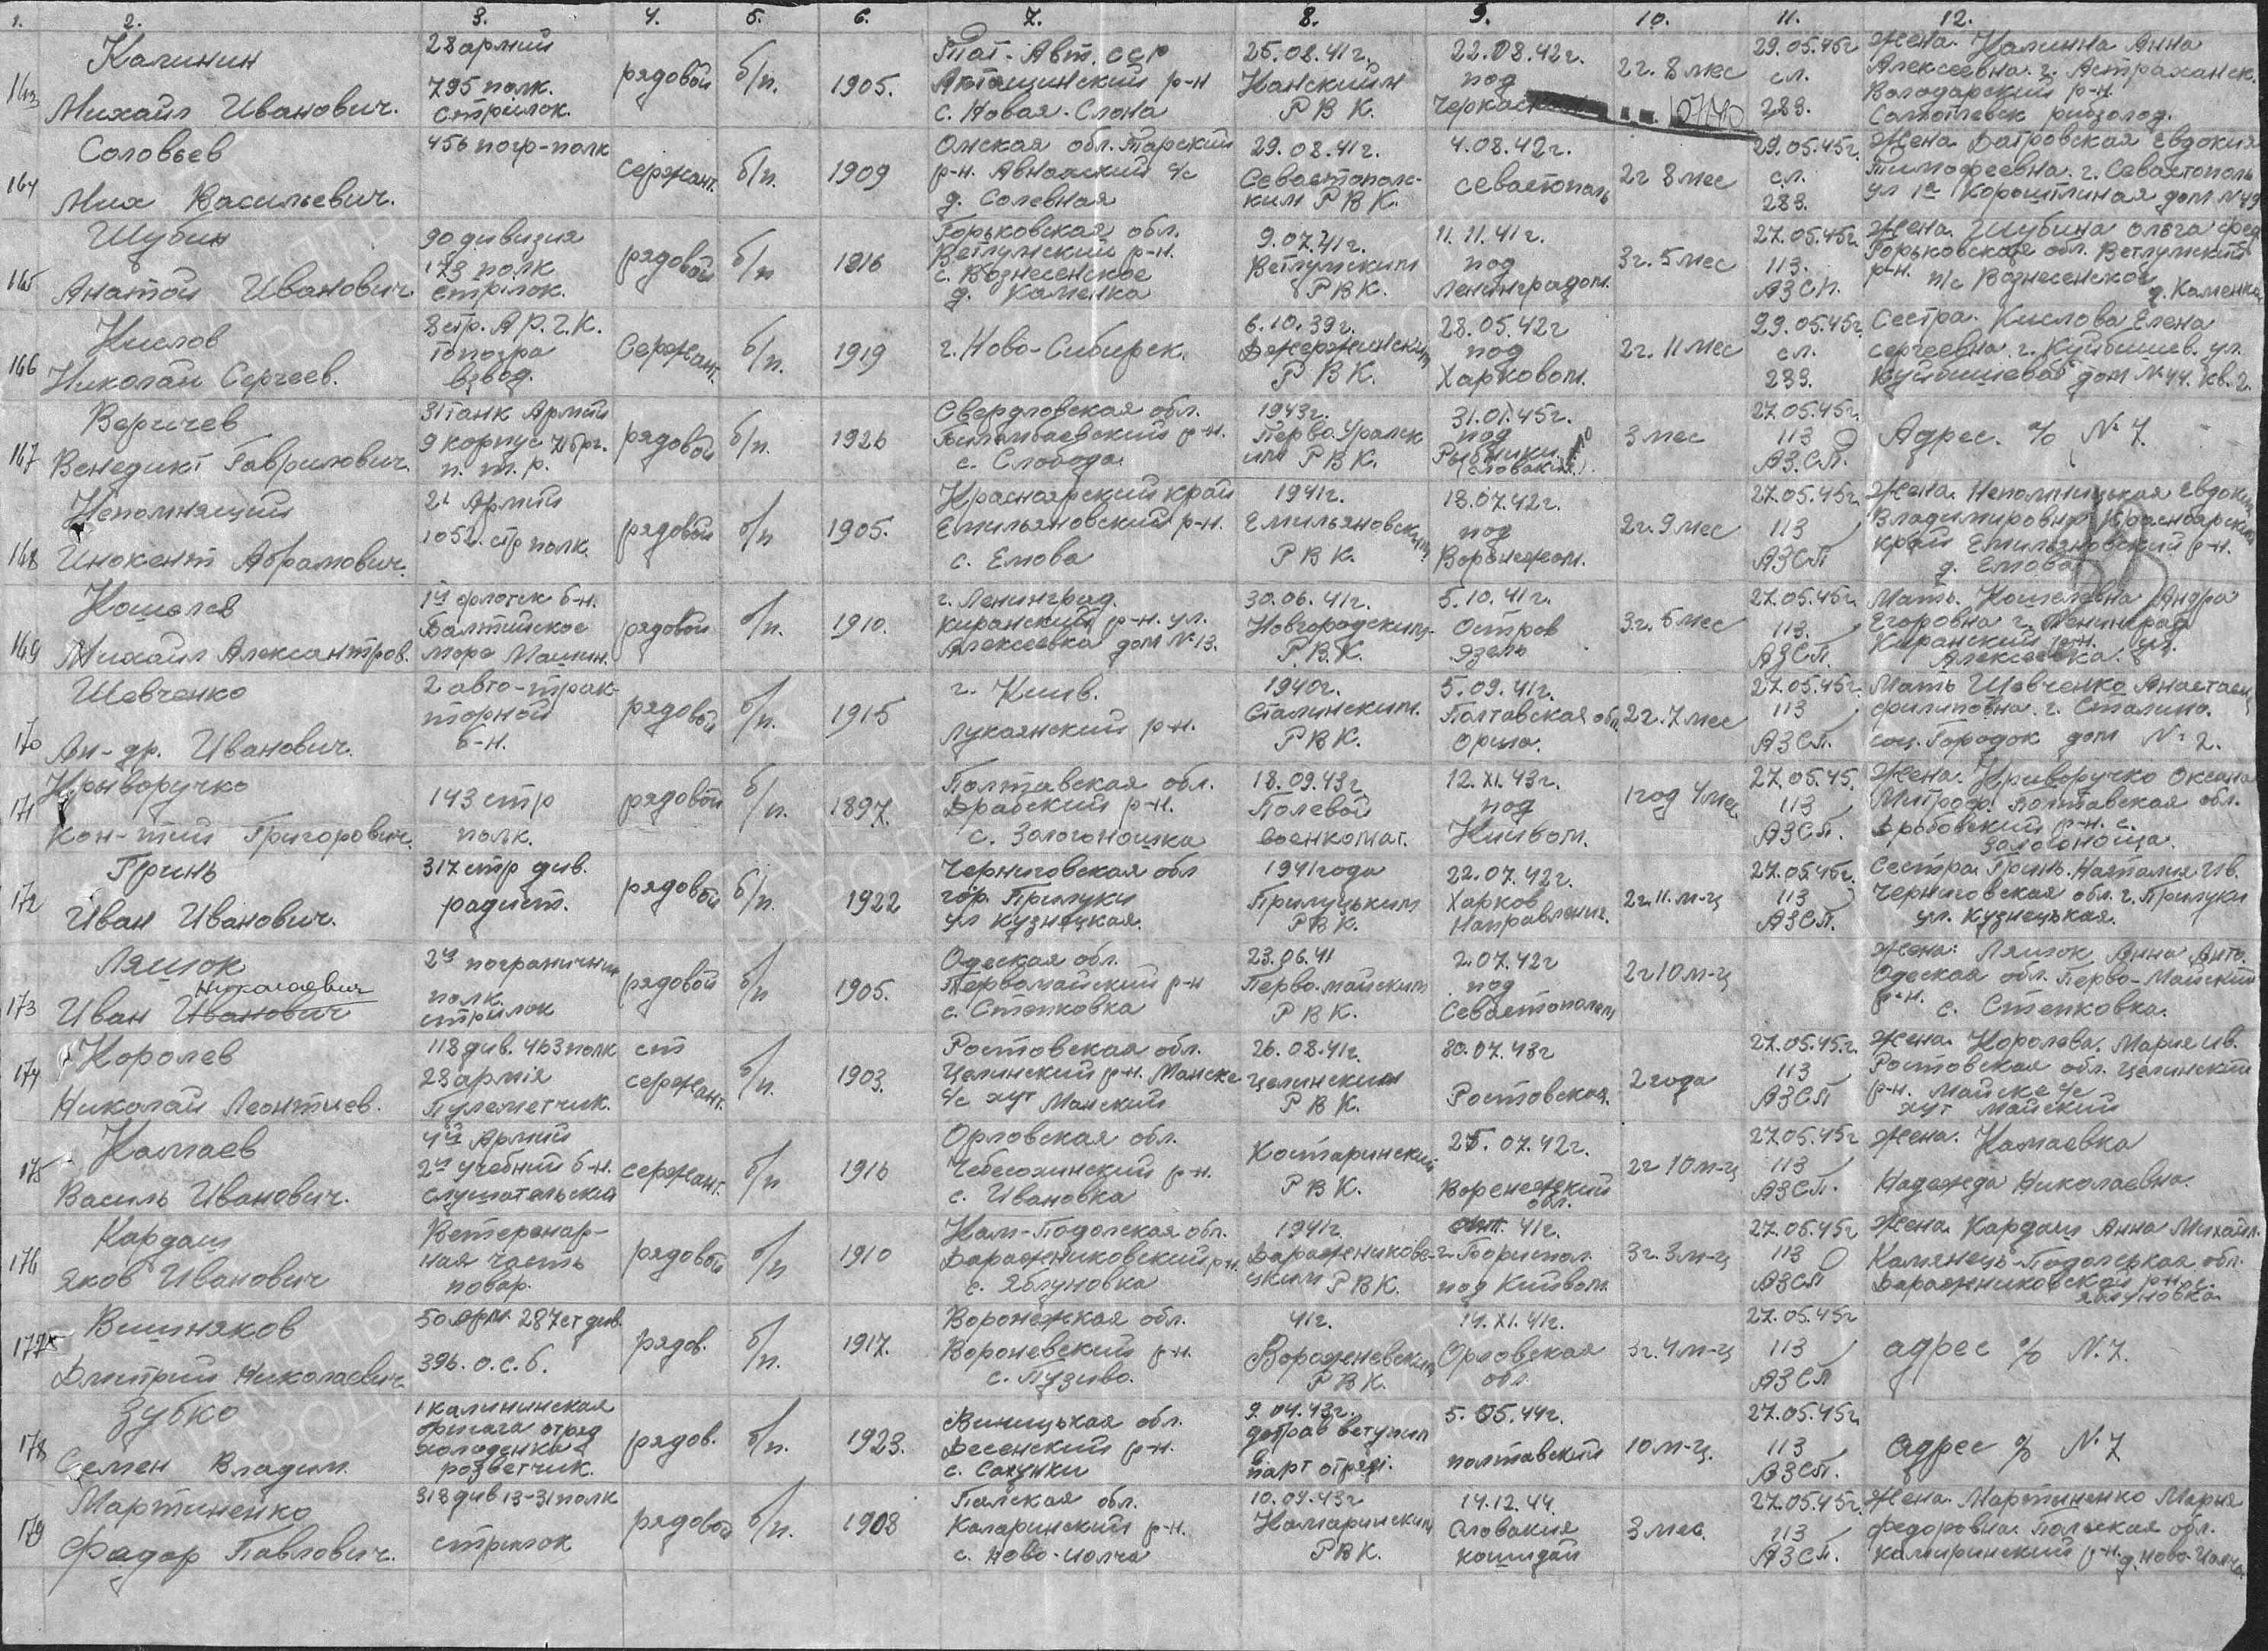 1. 2. 3. 4. 5. 6. 7. 8. 9. 10. 11. 12.
163 Калинин Михаил Иванович. 28 армии 795 полк. стрілок. рядовой б/п. 1905. Тат. Авт. ССР р-н с. Новая-Слона 25.08.41г. РВК. 22.08.42г. под 2г. 8 мес 29.05.45г сл. 283. Жена. Калинна Анна Алексеевна. г. Астраханск. Володарский р-н.
164 Соловьев Мих Васильевич. 456 погр-полк сержант. б/п. 1909 Омская обл. Тарский р-н. с/с д. Солевная 29.08.41г. Севастополь-ким РВК. 4.08.42г. Севастополь 2г 8 мес 29.05.45г. сл. 283. Жена. Батровская Евдокия Тимофеевна. г. Севастополь ул 1а дом №49
165 Шубин Анатой Иванович. 90 дивизия 173 полк стрілок. рядовой б/п 1916 Горьковская обл. Ветлужский р-н. с. Вознесенское д. Каменка 9.07.41г. Ветлужским РВК. 11.11.41г. под Ленинградом. 3г. 5 мес 27.05.45г. 113. АЗСП. Жена. Шубина Ольга Фед Горьковская обл. Ветлужский р-н. п/с Вознесенское д. Каменка
166 Кислов Николай Сергеев. 8 стр. А Р.Г.К. топогра взвод. Сержант. б/п. 1919 г. Ново-Сибирск. 6.10.39г. Джержинским РВК. 28.05.42г под Харковом. 2г. 11 мес 29.05.45г. сл. 283. Сестра. Кислова Елена Сергеевна. г. Куйбишев. ул. Куйбишева дом №44. кв. 2.
167 Веричев Венедикт Гаврилович. 31 танк Армии 9 корпус бриг. п. т. р. рядовой б/п. 1926 Свердловская обл. Билимбаевский р-н. с. Слобода 1943г. Перво.Уралск им РВК. 31.01.45г. под (Словакия). 3 мес 27.05.45г. 113 АЗСП. Адрес. % № 7.
168 Непомнящий Инокент Абрамович. 21 Армии 1052. стр полк. рядовой б/п 1905. Красноярский край Емильяновский р-н. с. Емова 1941г. Емильяновским РВК. 18.07.42г. под Воронежом. 2г. 9 мес 27.05.45г. 113 АЗСП Жена. Непомнищькая Евдокия Владимировна Красноярский край Емильяновский р-н. д. Емова
169 Кошелев Михаил Александров. 1й флотск б-н. Балтийское море Машин. рядовой б/п. 1910. г. Ленинград. Киранский р-н. ул. Алексеевка дом №13. 30.06.41г. Новгородским. РВК. 5.10.41г. Остров Эзель 3г. 6 мес 27.05.45г. 113. АЗСП. Мать. Кошелевна Андра Егоровна г. Ленинград Киранский р-н. ул. Алексеевка.
170 Шевченко Ан-др. Иванович. 2 авто-трак-торной б-н. рядовой б/п. 1915 г. Киив. Лукаянский р-н. 1940г. Сталинским. РВК. 5.09.41г. Полтавская обл. Орша. 2г. 7 мес 27.05.45г. 113 АЗСП. Мать Шевченко Анастасия Филиповна. г. Сталино. соц. Городок дом № 2.
171 Криворучко Кон-тий Григорович. 143 стр полк. рядовой б/п. 1897. Полтавская обл. Драбский р-н. с. Залогоношка 18.09.43г Полевой военкомат. 12.XI.43г. под Киівом. 1 год 4 мес 27.05.45. 113 АЗСП. Жена. Криворучко Оксана Митроф. Полтавская обл. Дробовский р-н. с. Залогоноща.
172 Гринь Иван Иванович. 317 стр див. радист. рядовой б/п. 1922 Черниговская обл гор. Прилуки ул Кузнецкая. 1941 года Прилуцьким РВК. 22.07.42г. Харков Направления. 2г. 11. м-ц 27.05.45г. 113 АЗСП. Сестра. Гринь. Наталия Ив. Черниговская обл. г. Прилуки ул. Кузнецькая.
173 Ляшок Николаевич Иван Иванович 2й пограничний полк. стрілок рядовой б/п 1905. Одеская обл. Первомайский р-н с. Степковка 23.06.41 Перво.майским РВК. 2.07.42г под Севастополем 2г 10 м-ц Жена: Ляшок Анна Анто. Одеская обл. Перво-Майский р-н. с. Степковка.
174 Королев Николай Леонтиев. 118 див. 463 полк 28 армія Пулеметчик. ст сержант. б/п. 1903. Ростовская обл. Целинский р-н. Манске с/с хут Манский 26.08.41г. Целинским РВК. 30.07.43г Ростовская. 2 года 27.05.45г. 113 АЗСП Жена. Королева. Мария Ив. Ростовская обл. Целинский р-н. Майске с/с хут Майский
175 Камаев Василь Иванович. 4й Армий 2й учебний б-н. слушательский сержант. б/п 1916 Орловская обл. р-н с. Ивановка Костаринский РВК. 25.07.42г. Воронежский обл. 2г 10 м-ц 27.05.45г 113 АЗСП. Жена. Камаевка Надежда Николаевна.
176 Кардаш Яков Иванович Ветеренар-ная часть повар. рядовой б/п 1910 Кам-Подолская обл. Баражниковский р-н. с. Яблуновка 1941г. РВК. 41г. г. Бориспол. под Киівом. 3г. 3 м-ц 27.05.45г 113 АЗСП Жена. Кардаш Анна Михайл. Камянець-Подолсркая обл. р-н. с. Яблуновка.
177 Вишняков Дмитрий Николаевич 50 арм. 287 ст див. 396. о.с.б. рядов. б/п. 1917. Воронежская обл. Вороневский р-н. с. Пузиво. 41г. РВК. 14.XI.41г. Орловская обл. 3г. 4 м-ц 27.05.45г 113 АЗСП адрес % № 7.
178 Зубко Семен Владим. 1 калининская бригага отряд розветчик. рядов. б/п. 1923. Виницькая обл. Десенский р-н. с. Сахунки 9.04.43г. вступил в парт отряд. 5.05.44г. полтавский 10 м-ц. 27.05.45г 113 АЗСП. Адрес % № 7
179 Мартиненко Фадор Павлович. 318 див 13-31 полк стрілок рядовой б/п. 1908 обл. р-н. с. Ново-Иолча 10.09.43г РВК. 14.12.44 Словакия 3 мес. 27.05.45г. 113 АЗСП. Жена. Мартиненко Мария Федоровна. обл. р-н. д. Ново-Иолча.